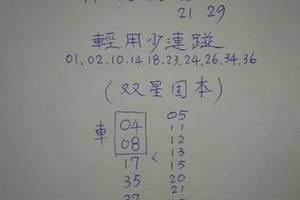 21 29
輕用少連碰
01.02.10.14.18.23.24.26.34.36
(双星固本)
車 04 05
11
08 12
13
17 < 15
35 20
21